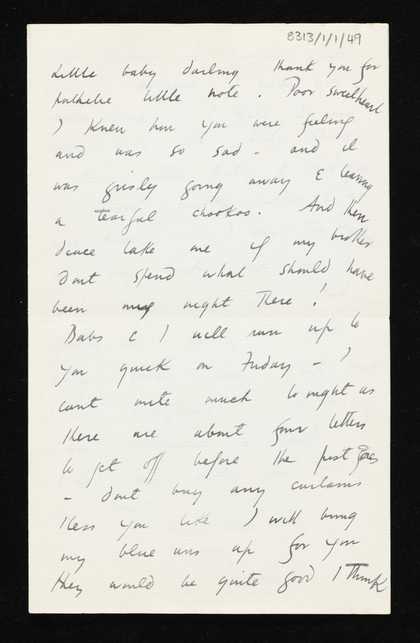 8313/1/1/49
Little baby darling thank you for
pathetic little note. Poor sweetheart
I knew how you were feeling
and was so sad - and it
was grisly going away & leaving
a tearful chookos. And then
deuce take me if my brother
dont spend what should have
been my night there!
Babs & I will run up to
you quick on Friday - I
cant write much tonight as
there are about four letters
to get off before the post goes
- dont buy any curtains
less you like I will bring
my blue uns up for you
they would be quite good I think